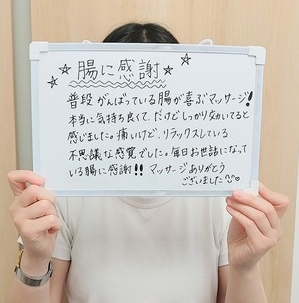 ☆☆腸に感謝☆☆
普段がんばっている腸が喜ぶマッサージ!
本当に気持ち良くて、だけどしっかり効いてると
感じました。痛いけど、リラックスしている
不思議な感覚でした。毎日お世話になって
いる腸に感謝!! マッサージありがとう
ございました